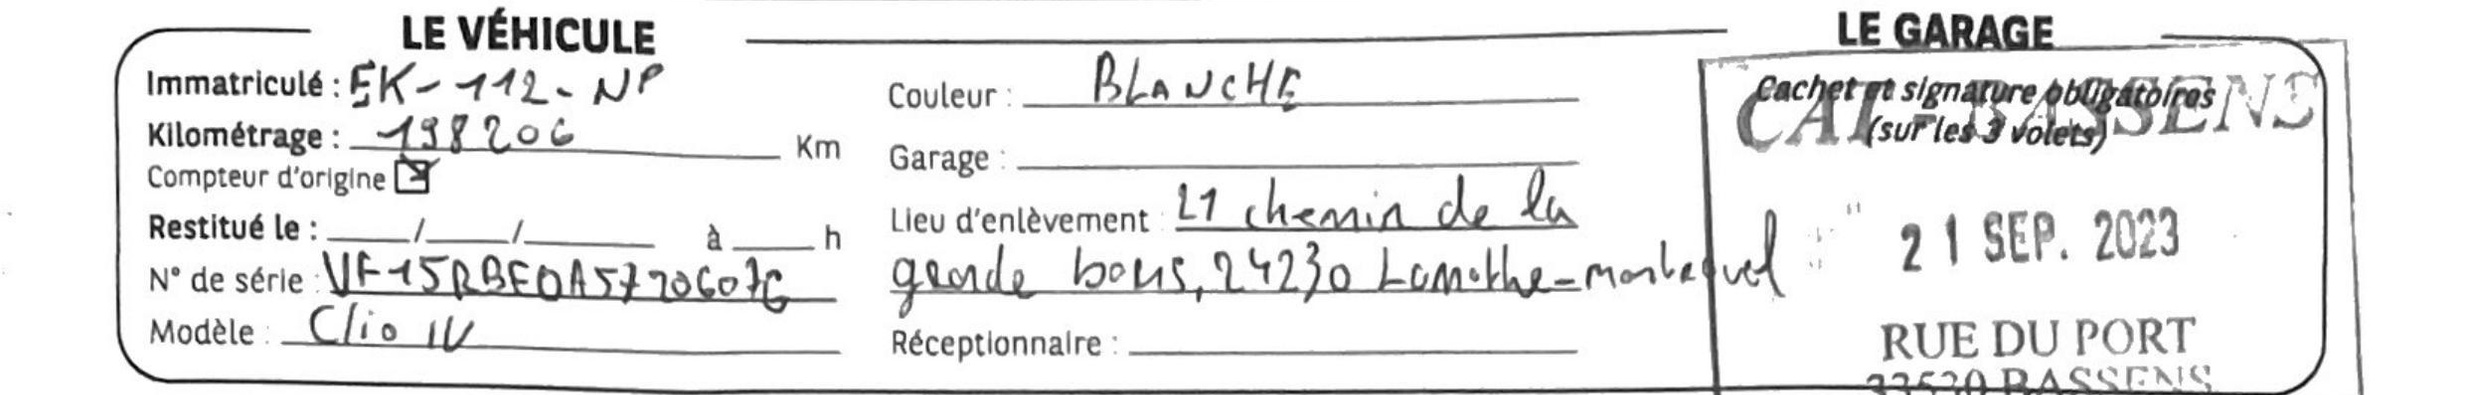 LE VÉHICULE
Immatriculé : EK-112-NP
Kilométrage : 198206 Km
Compteur d'origine
Restitué le : ___/___/___ à ___ h
N° de série : VF15RBF0A57206076
Modèle : Clio IV
Couleur : BLANCHE
Garage :
Lieu d'enlèvement : 21 chemin de la
grande bous, 24230 Lamothe-montravel
Réceptionnaire :
LE GARAGE
Cachet et signature obligatoires
(sur les 3 volets)
CAT-BASSENS
21 SEP. 2023
RUE DU PORT
33530 BASSENS